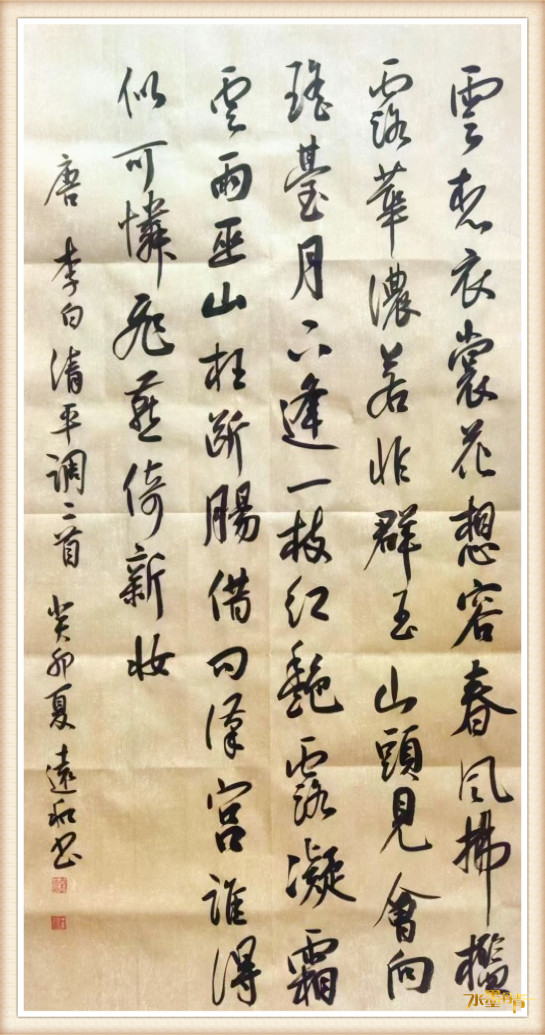 雲想衣裳花想容春风拂檻
露華濃若非群玉山頭見會向
瑤臺月下逢一枝红艷露凝霜
雲雨巫山枉断腸借问漢宮誰得
似可憐飛燕倚新妆
唐 李白清平调二首 癸卯夏 遠和书
水墨